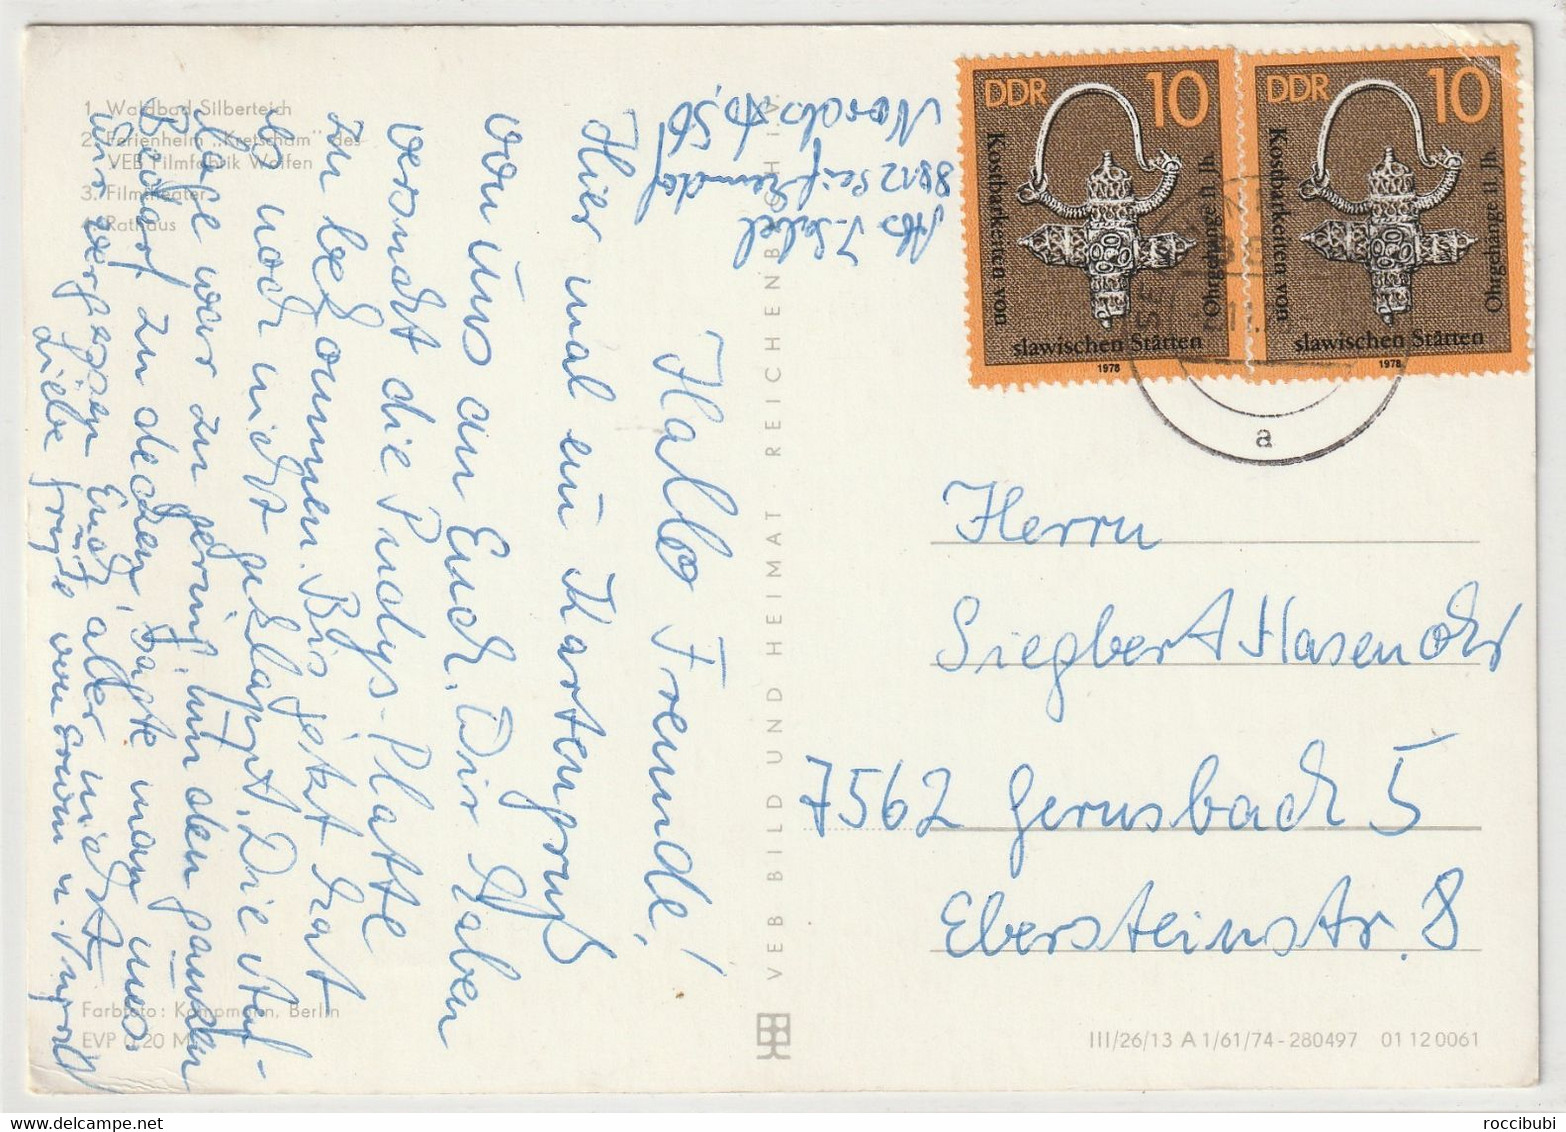 1. Waldbad Silberteich
2. Ferienheim „Kretscham" des
VEB Filmfabrik Wolfen
3. Filmtheater
4. Rathaus
Abs I. Sebel
8812 Seifhennersdorf
Hallo Freunde!
Hier mal ein Kartengruß
von uns an Euch. Wir haben
versucht die Pudys-Platte
zu bekommen. Bis jetzt hat
es noch nicht geklappt. Die Auf-
lage war zu gering, um den ganzen
Bedarf zu decken, sagte man uns.
Wir vergessen Euch aber nicht
Liebe Grüße von Erwin u. Ingrid
Farbfoto: Kampmann, Berlin
EVP 0,20 M
VEB BILD UND HEIMAT · REICHENBACH I. V.
DDR 10
Kostbarkeiten von
slawischen Stätten
Ohrgehänge 11. Jh.
1978
DDR 10
Kostbarkeiten von
slawischen Stätten
Ohrgehänge 11. Jh.
1978
a
Herrn
Siegbert Hasenohr
7562 Gernsbach 5
Ebersteinstr. 8
III/26/13 A 1/61/74-280497 01 12 0061
roccibubi